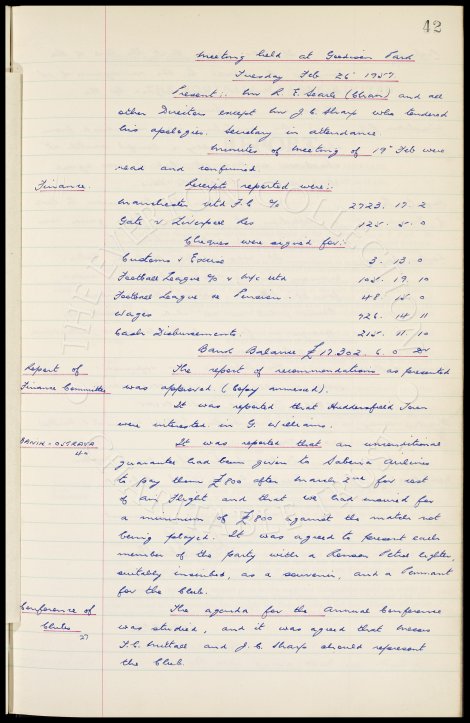 42
Meeting held at Goodison Park
Tuesday Feb 26th 1957
Present:- Mr R. F. Searle (Chair) and all
other Directors except Mr J. C. Sharp who tendered
his apologies. Secretary in attendance.
Minutes of meeting of 19th Feb were
read and confirmed.
Finance. Receipts reported were:-
Manchester Utd F.C. % 2723. 17. 2
Gate v Liverpool Res 125. 5. 0
Cheques were signed for:-
Customs & Excise 3. 13. 0
Football League % v M/c Utd 105. 19. 10
Football League re Pension. 48. 15. 0
Wages 926. 14. 11
Cash Disbursements. 215. 11. 10
Bank Balance £17.302. 6. 0
Report of The report of recommendations as presented
Finance Committee was approved. (Copy annexed).
It was reported that Huddersfield Town
were interested in G. Williams.
BANIK-OSTRAVA It was reported that an unconditional
guarantee had been given to Sabena Airlines
to pay them £800 after March 2nd for cost
of Air Flight and that we had insured for
a minimum of £800 against the match not
being played. It was agreed to present each
member of the party with a Ronson Petrol lighter,
suitably inscribed, as a souvenir, and a Pennant
for the Club.
Conference of The agenda for the Annual Conference
Clubs was studied, and it was agreed that Messrs
27
F.C. Nuttall and J. C. Sharp should represent
the Club.